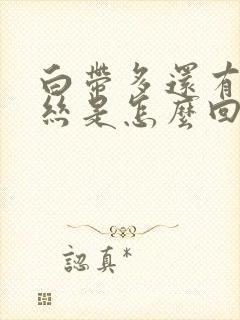 白帶多還有
絲是怎麼回
認真*